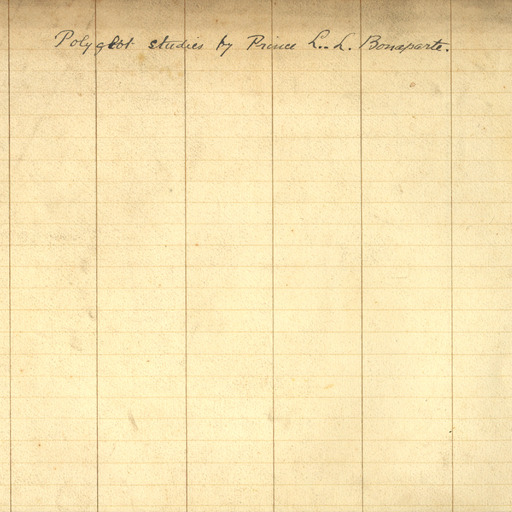 Polyglot studies by Prince L.-L. Bonaparte.